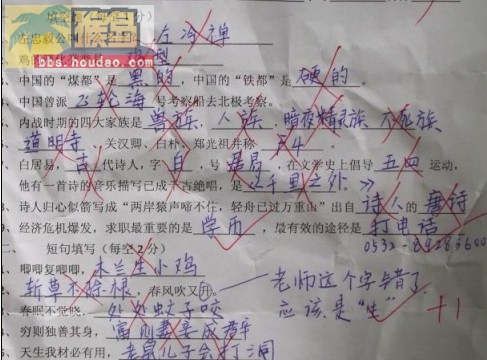 猴岛
bbs.houdao.com
左忠毅公 左冷禅
鸡
、中国的“煤都”是 黑的 ,中国的“铁都”是 硬的 。
、中国曾派 飞轮海 号考察船去北极考察。
、内战时期的四大家族是 兽族 、 人族 、 暗夜精灵族 、 不死族
、 道明寺 、关汉卿、白朴、郑光祖并称 F4 。
、白居易, 古 代诗人,字 白 ,号 居易 ,在文学史上倡导 五四 运动,
他有一首诗的音乐描写已成千古绝唱,是 《千里之外》
、诗人归心似箭写成“两岸猿声啼不住,轻舟已过万重山”出自 诗人 的 唐诗
、经济危机爆发,求职最重要的是 学历 ,最有效的途径是 打电话
0532-89283600
二、 短句填写(每空2分)
、唧唧复唧唧, 木兰生小鸡
、 斩草不除根 ,春风吹又升。 老师这个字错了
应该是“生” +1
、春眠不觉晓, 处处蚊子咬
、穷则独善其身, 富则妻妾成群
、天生我材必有用, 老鼠儿子会打洞